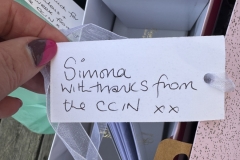 Simona
with thanks from
the CCIN xx